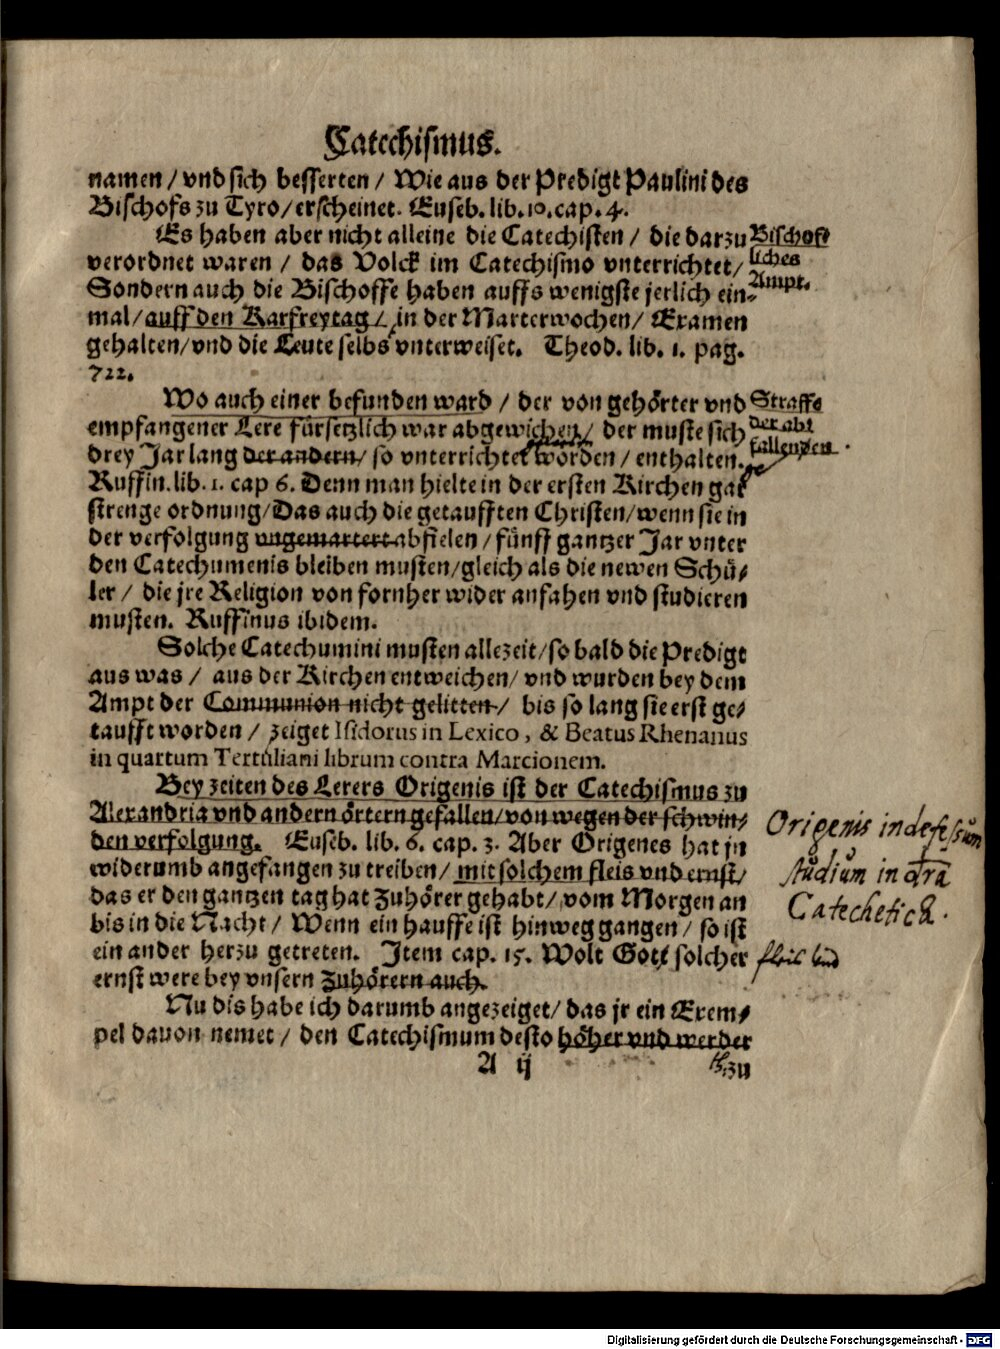 Catechismus.
namen / vnd sich besserten / Wie aus der Predigt Paulini des
Bischofs zu Tyro / erscheinet. Euseb. lib. 10. cap. 4.
Es haben aber nicht alleine die Catechisten / die darzu
verordnet waren / das Volck im Catechismo vnterrichtet /
Sondern auch die Bischoffe haben auffs wenigste jerlich ein-
mal / auff den Karfreytag / in der Marterwochen / Examen
gehalten / vnd die Leute selbs vnterweiset. Theod. lib. 1. pag.
722.
Bischoff
liches
Ampt.
Wo auch einer befunden ward / der von gehörter vnd
empfangener Lere fürsetzlich war abgewichen / der muste sich
drey Jar lang der andern / so vnterrichtet worden / enthalten.
Ruffin. lib. 1. cap 6. Denn man hielte in der ersten Kirchen gar
strenge ordnung / Das auch die getaufften Christen / wenn sie in
der verfolgung vngemartert abfielen / fünff gantzer Jar vnter
den Catechumenis bleiben musten / gleich als die newen Schü-
ler / die jre Religion von fornher wider anfahen vnd studieren
musten. Ruffinus ibidem.
Straffe
der abt
fallenden
Solche Catechumini musten allezeit / so bald die Predigt
aus was / aus der Kirchen entweichen / vnd wurden bey dem
Ampt der Communion nicht gelitten / bis so lang sie erst ge-
taufft worden / zeiget Isidorus in Lexico, & Beatus Rhenanus
in quartum Tertuliani librum contra Marcionem.
Bey zeiten des Lerers Origenis ist der Catechismus zu
Alexandria vnd andern örtern gefallen / von wegen der schwin-
den verfolgung. Euseb. lib. 6. cap. 3. Aber Origenes hat jn
widerumb angefangen zu treiben / mit solchem fleis vnd ernst /
das er den gantzen tag hat Zuhörer gehabt / vom Morgen an
bis in die Nacht / Wenn ein hauffe ist hinweg gangen / so ist
ein ander herzu getreten. Item cap. 15. Wolt Gott solcher
ernst were bey vnsern Zuhörern auch.
Origenis indefessum
studium in
Catechetica.
Nu dis habe ich darumb angezeiget / das jr ein Exem-
pel dauon nemet / den Catechismum desto höher vnd werder
A ij
zu
Digitalisierung gefördert durch die Deutsche Forschungsgemeinschaft - DFG